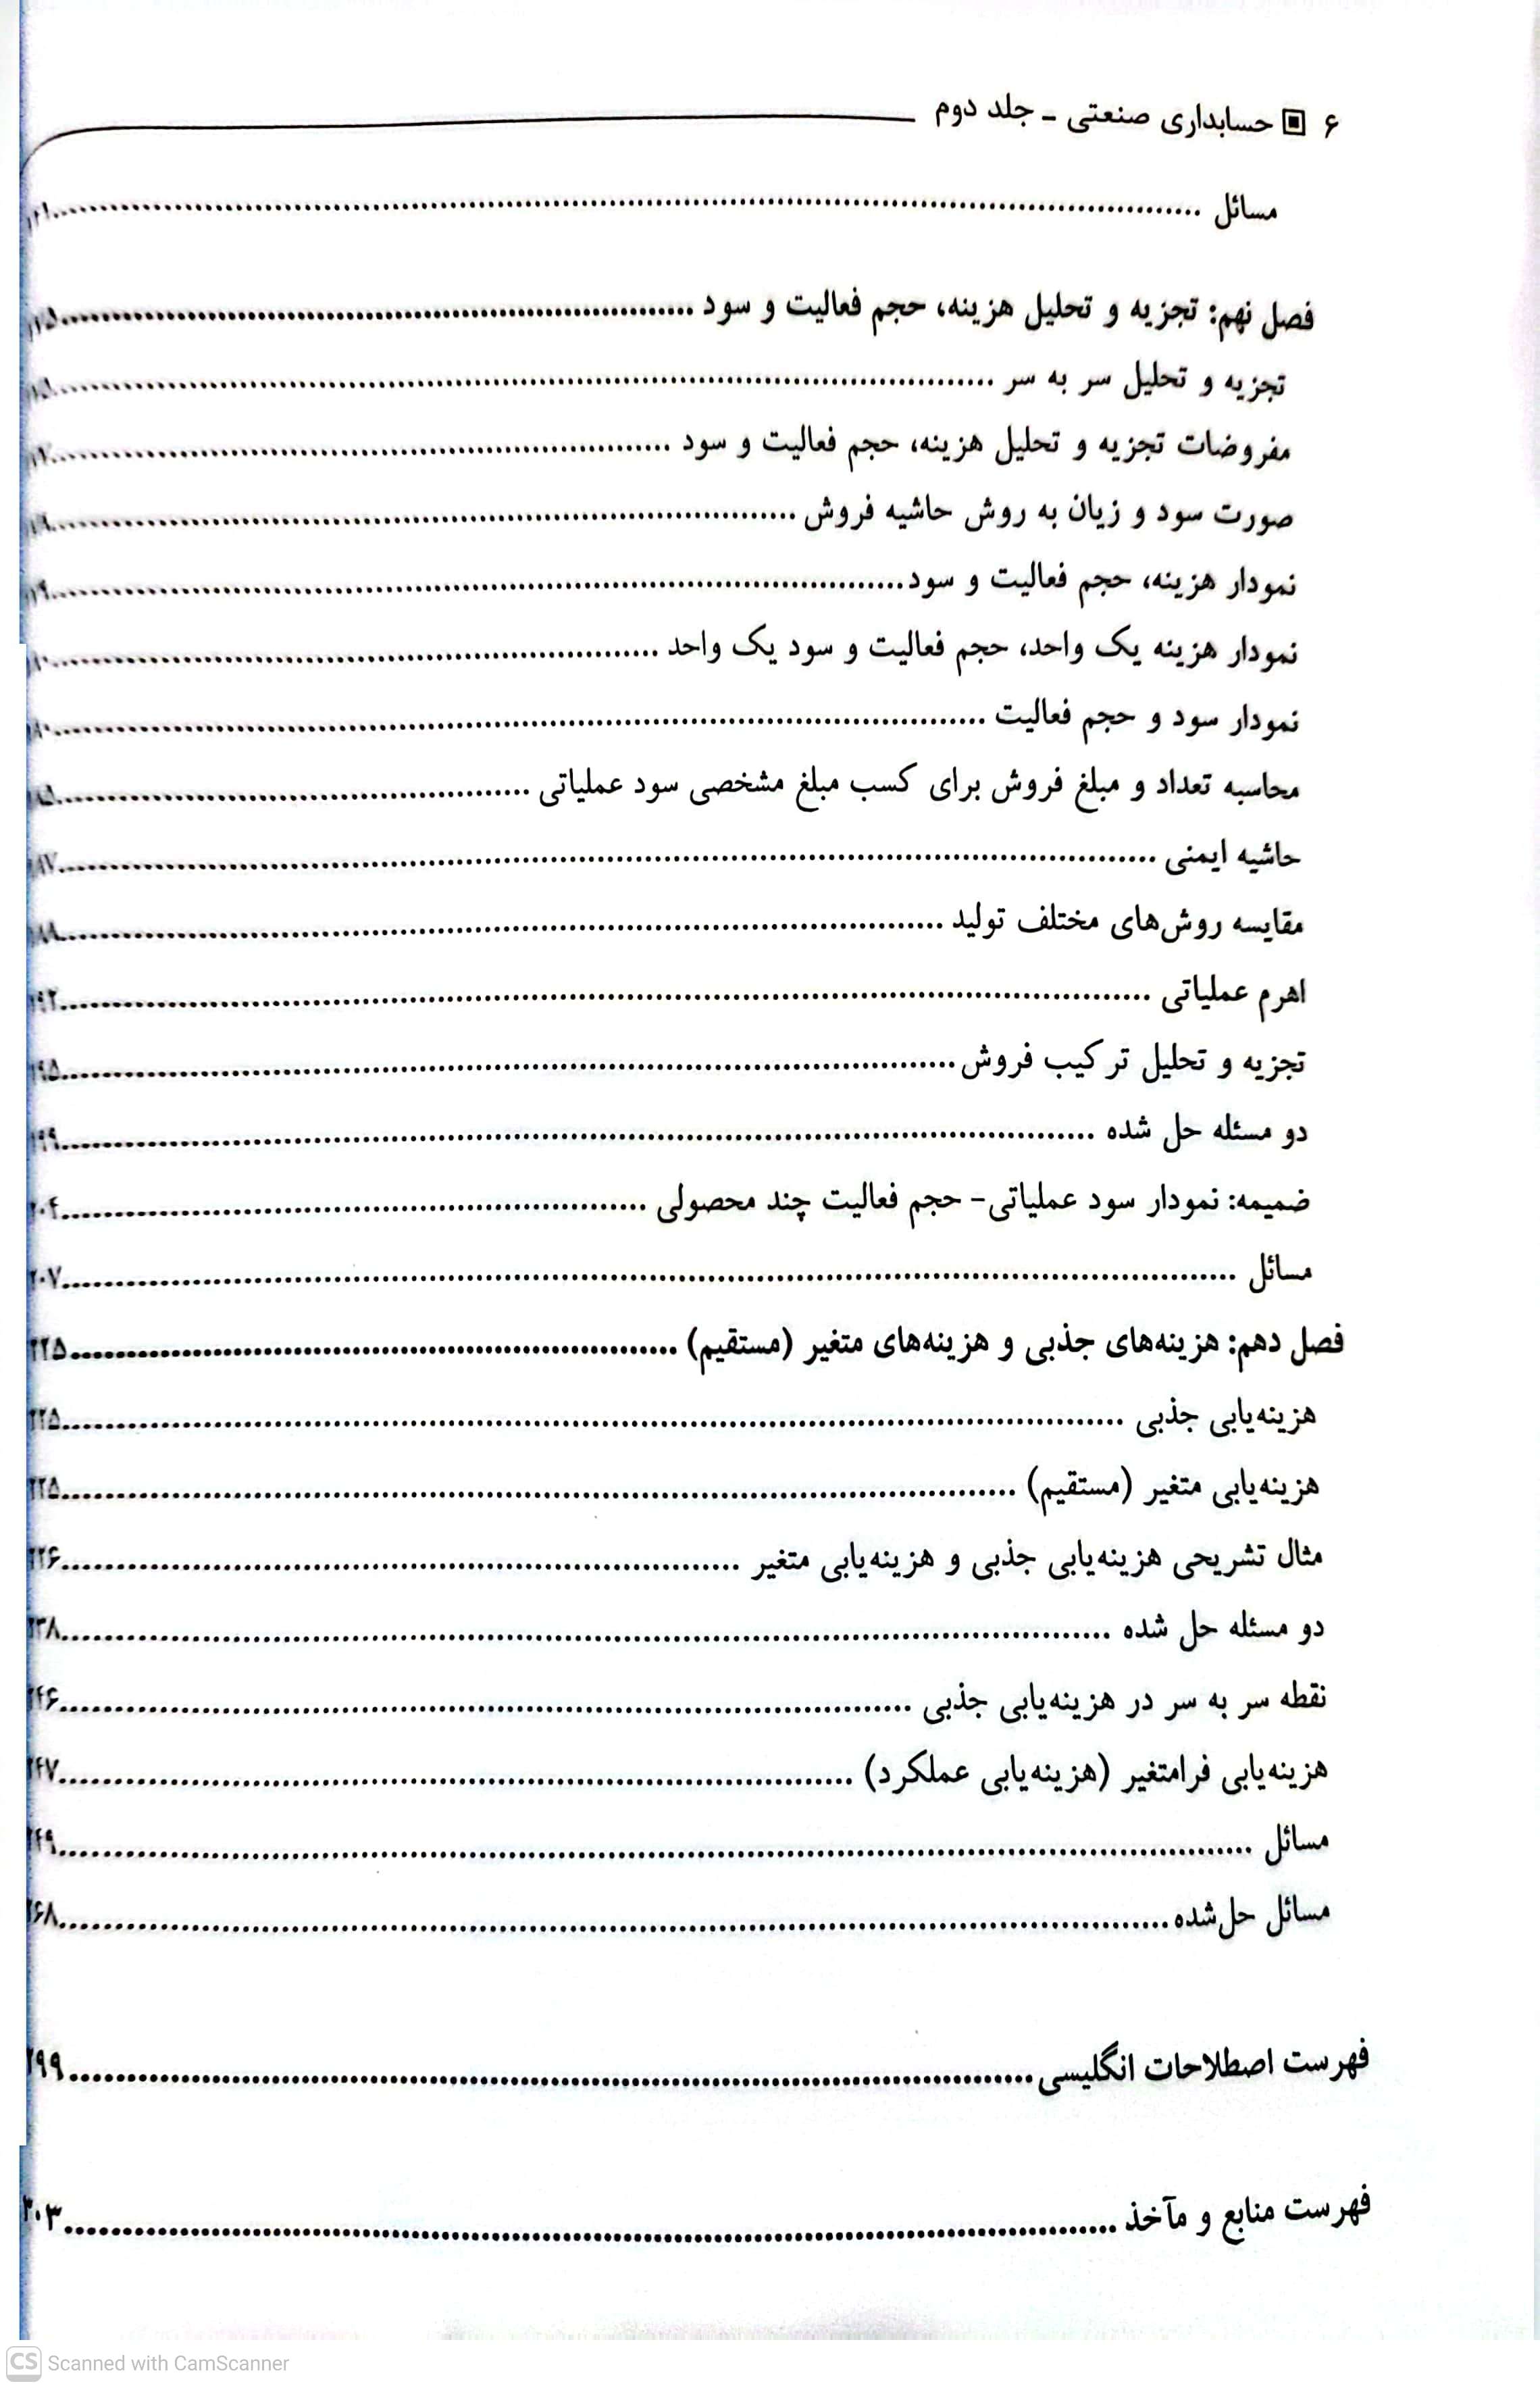 ۶ حسابداری صنعتی ـ جلد دوم
مسائل
فصل نهم: تجزیه و تحلیل هزینه، حجم فعالیت و سود
تجزیه و تحلیل سر به سر
مفروضات تجزیه و تحلیل هزینه، حجم فعالیت و سود
صورت سود و زیان به روش حاشیه فروش
نمودار هزینه، حجم فعالیت و سود
نمودار هزینه یک واحد، حجم فعالیت و سود یک واحد
نمودار سود و حجم فعالیت
محاسبه تعداد و مبلغ فروش برای کسب مبلغ مشخصی سود عملیاتی
حاشیه ایمنی ۱۸۷
مقایسه روش‌های مختلف تولید
اهرم عملیاتی ۱۹۲
تجزیه و تحلیل ترکیب فروش ۱۹۵
دو مسئله حل شده ۱۹۹
ضمیمه: نمودار سود عملیاتی- حجم فعالیت چند محصولی ۲۰۴
مسائل ۲۰۷
فصل دهم: هزینه‌های جذبی و هزینه‌های متغیر (مستقیم) ۲۲۵
هزینه‌یابی جذبی ۲۲۵
هزینه‌یابی متغیر (مستقیم) ۲۲۵
مثال تشریحی هزینه‌یابی جذبی و هزینه‌یابی متغیر ۲۲۶
دو مسئله حل شده ۲۳۸
نقطه سر به سر در هزینه‌یابی جذبی ۲۴۶
هزینه‌یابی فرامتغیر (هزینه‌یابی عملکرد) ۲۴۷
مسائل ۲۴۹
مسائل حل‌شده ۲۶۸
فهرست اصطلاحات انگلیسی ۲۹۹
فهرست منابع و مآخذ ۳۰۳
CS Scanned with CamScanner